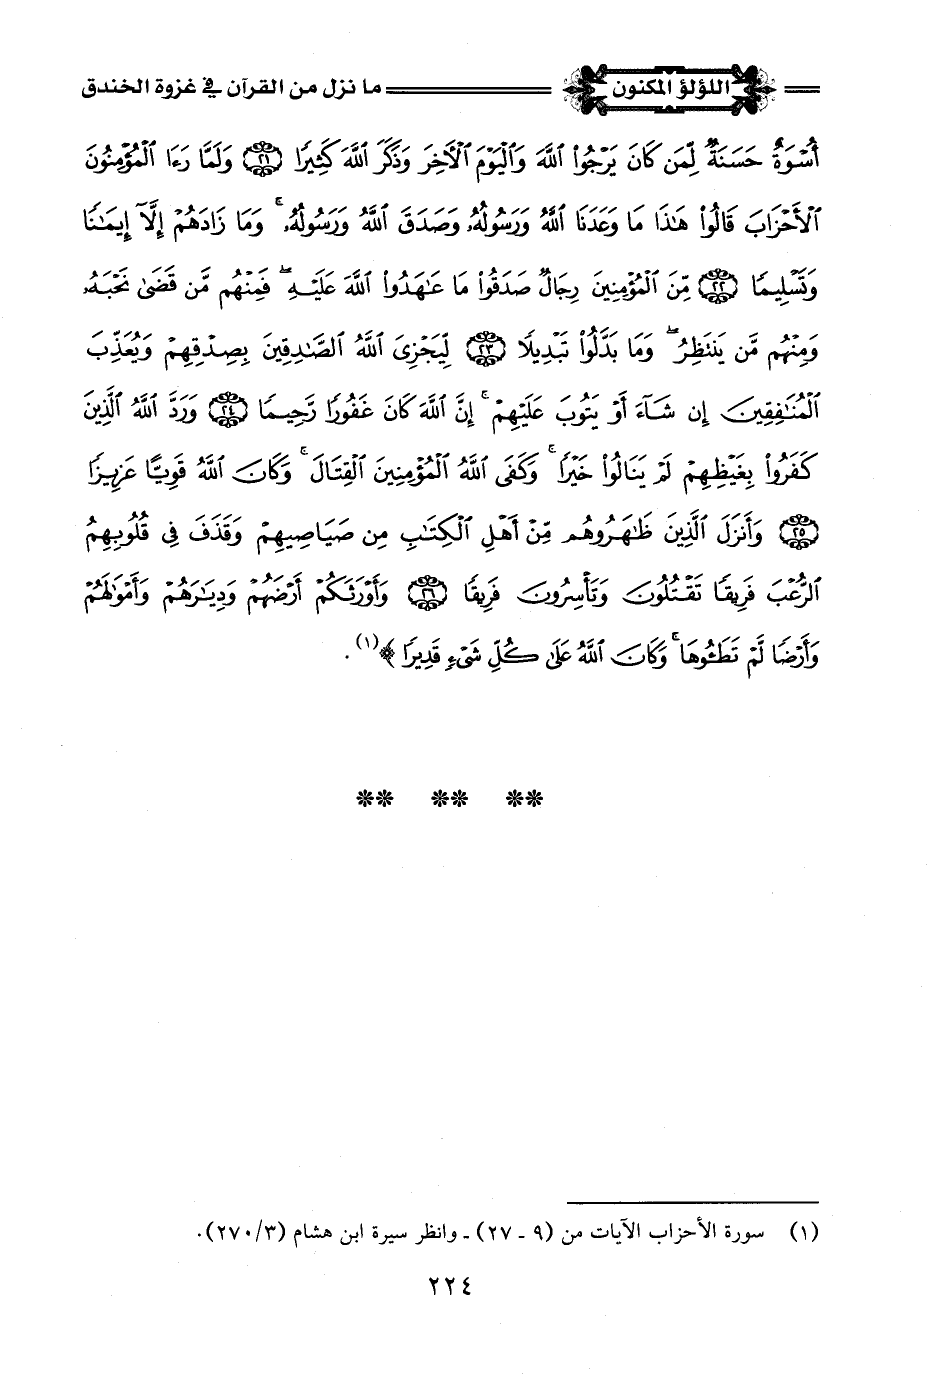 اللؤلؤ المكنون ما نزل من القرآن في غزوة الخندق
أُسْوَةٌ حَسَنَةٌ لِّمَن كَانَ يَرْجُواْ ٱللَّهَ وَٱلْيَوْمَ ٱلْأَخِرَ وَذَكَرَ ٱللَّهَ كَثِيرًا ﴿٢١﴾ وَلَمَّا رَءَا ٱلْمُؤْمِنُونَ
ٱلْأَحْزَابَ قَالُواْ هَٰذَا مَا وَعَدَنَا ٱللَّهُ وَرَسُولُهُۥ وَصَدَقَ ٱللَّهُ وَرَسُولُهُۥ ۚ وَمَا زَادَهُمْ إِلَّآ إِيمَٰنًا
وَتَسْلِيمًا ﴿٢٢﴾ مِّنَ ٱلْمُؤْمِنِينَ رِجَالٌ صَدَقُواْ مَا عَٰهَدُواْ ٱللَّهَ عَلَيْهِ ۖ فَمِنْهُم مَّن قَضَىٰ نَحْبَهُۥ
وَمِنْهُم مَّن يَنتَظِرُ ۖ وَمَا بَدَّلُواْ تَبْدِيلًا ﴿٢٣﴾ لِّيَجْزِىَ ٱللَّهُ ٱلصَّٰدِقِينَ بِصِدْقِهِمْ وَيُعَذِّبَ
ٱلْمُنَٰفِقِينَ إِن شَآءَ أَوْ يَتُوبَ عَلَيْهِمْ ۚ إِنَّ ٱللَّهَ كَانَ غَفُورًا رَّحِيمًا ﴿٢٤﴾ وَرَدَّ ٱللَّهُ ٱلَّذِينَ
كَفَرُواْ بِغَيْظِهِمْ لَمْ يَنَالُواْ خَيْرًا ۚ وَكَفَى ٱللَّهُ ٱلْمُؤْمِنِينَ ٱلْقِتَالَ ۚ وَكَانَ ٱللَّهُ قَوِيًّا عَزِيزًا
﴿٢٥﴾ وَأَنزَلَ ٱلَّذِينَ ظَٰهَرُوهُم مِّنْ أَهْلِ ٱلْكِتَٰبِ مِن صَيَاصِيهِمْ وَقَذَفَ فِى قُلُوبِهِمُ
ٱلرُّعْبَ فَرِيقًا تَقْتُلُونَ وَتَأْسِرُونَ فَرِيقًا ﴿٢٦﴾ وَأَوْرَثَكُمْ أَرْضَهُمْ وَدِيَٰرَهُمْ وَأَمْوَٰلَهُمْ
وَأَرْضًا لَّمْ تَطَـُٔوهَا ۚ وَكَانَ ٱللَّهُ عَلَىٰ كُلِّ شَىْءٍ قَدِيرًا ﴾(١).
** ** **
(١) سورة الأحزاب الآيات من (٩ - ٢٧) - وانظر سيرة ابن هشام (٣/ ٢٧٠).
٢٢٤